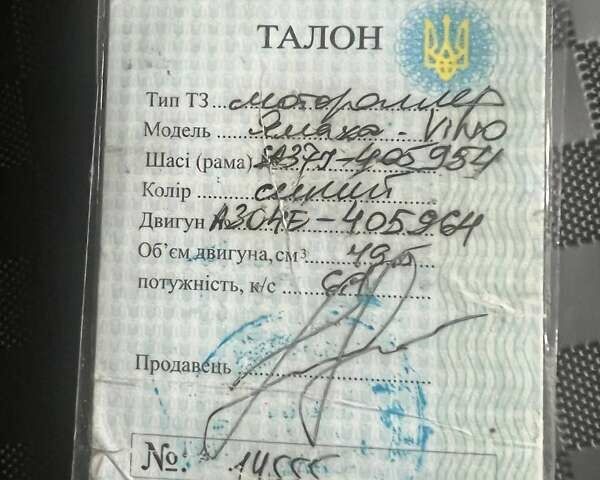 ТАЛОН
Тип ТЗ мотороллер
Модель Ямаха - VINO
Шасі (рама) SA37J-405954
Колір синий
Двигун № A304E-405964
Об'єм двигуна, см³ 49,5
потужність, к/с
Продавець
№: